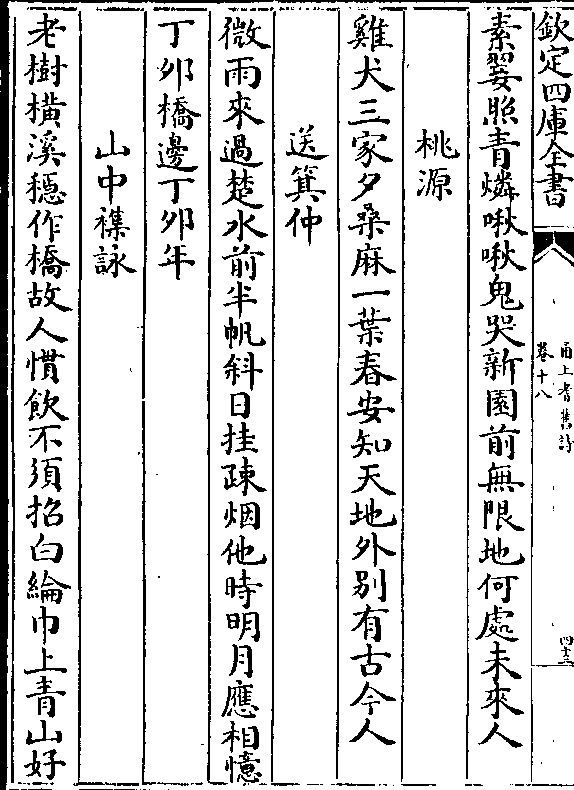 欽定四庫全書
甬上耆舊詩
卷十八
四十三
素翣照青燐啾啾鬼哭新園前無限地何處未來人
桃源
雞犬三家夕桑麻一葉春安知天地外别有古今人
送箕仲
微雨來過楚水前半帆斜日挂疎烟他時明月應相憶
丁夘橋邊丁夘年
山中襍詠
老樹橫溪穩作橋故人慣飲不須招白綸巾上青山好